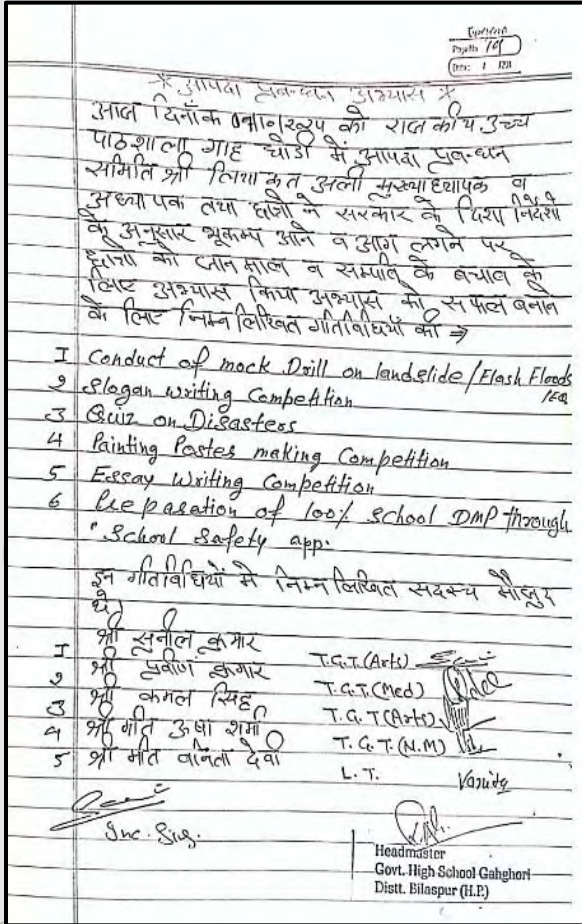 * आपदा प्रबन्धन अभ्यास *
आज दिनाँक को राजकीय उच्च
पाठशाला गाह घोडी में आपदा प्रबन्धन
समिति श्री लियाकत अली मुख्याध्यापक व
अध्यापक तथा छात्रों ने सरकार के दिशा निर्देशो
के अनुसार भूकम्प आने व आग लगने पर
छात्रो की जान माल व सम्पति के बचाव के
लिए अभ्यास किया अभ्यास को सफल बनाने
के लिए निम्न लिखित गतिविधियाँ की ⇒
1 Conduct of mock Drill on landslide/Flash Floods
/EQ
2 Slogan writing Competition
3 Quiz on Disasters
4 Painting Poster making Competition
5 Essay Writing Competition
6 Preparation of 100% School DMP through
"School Safety app.
इन गतिविधियों मे निम्न लिखित सदस्य मौजुद
थे।
1 श्री सुनील कुमार T.G.T.(Arts)
2 श्री प्रवीण कुमार T.G.T.(Med)
3 श्री कमल सिंह T.G.T(Arts)
4 श्री मति ऊषा शर्मा T.G.T.(N.M)
5 श्री मति वनिता देवी L.T. Vanita
Headmaster
Govt. High School Gahghori
Distt. Bilaspur (H.P.)